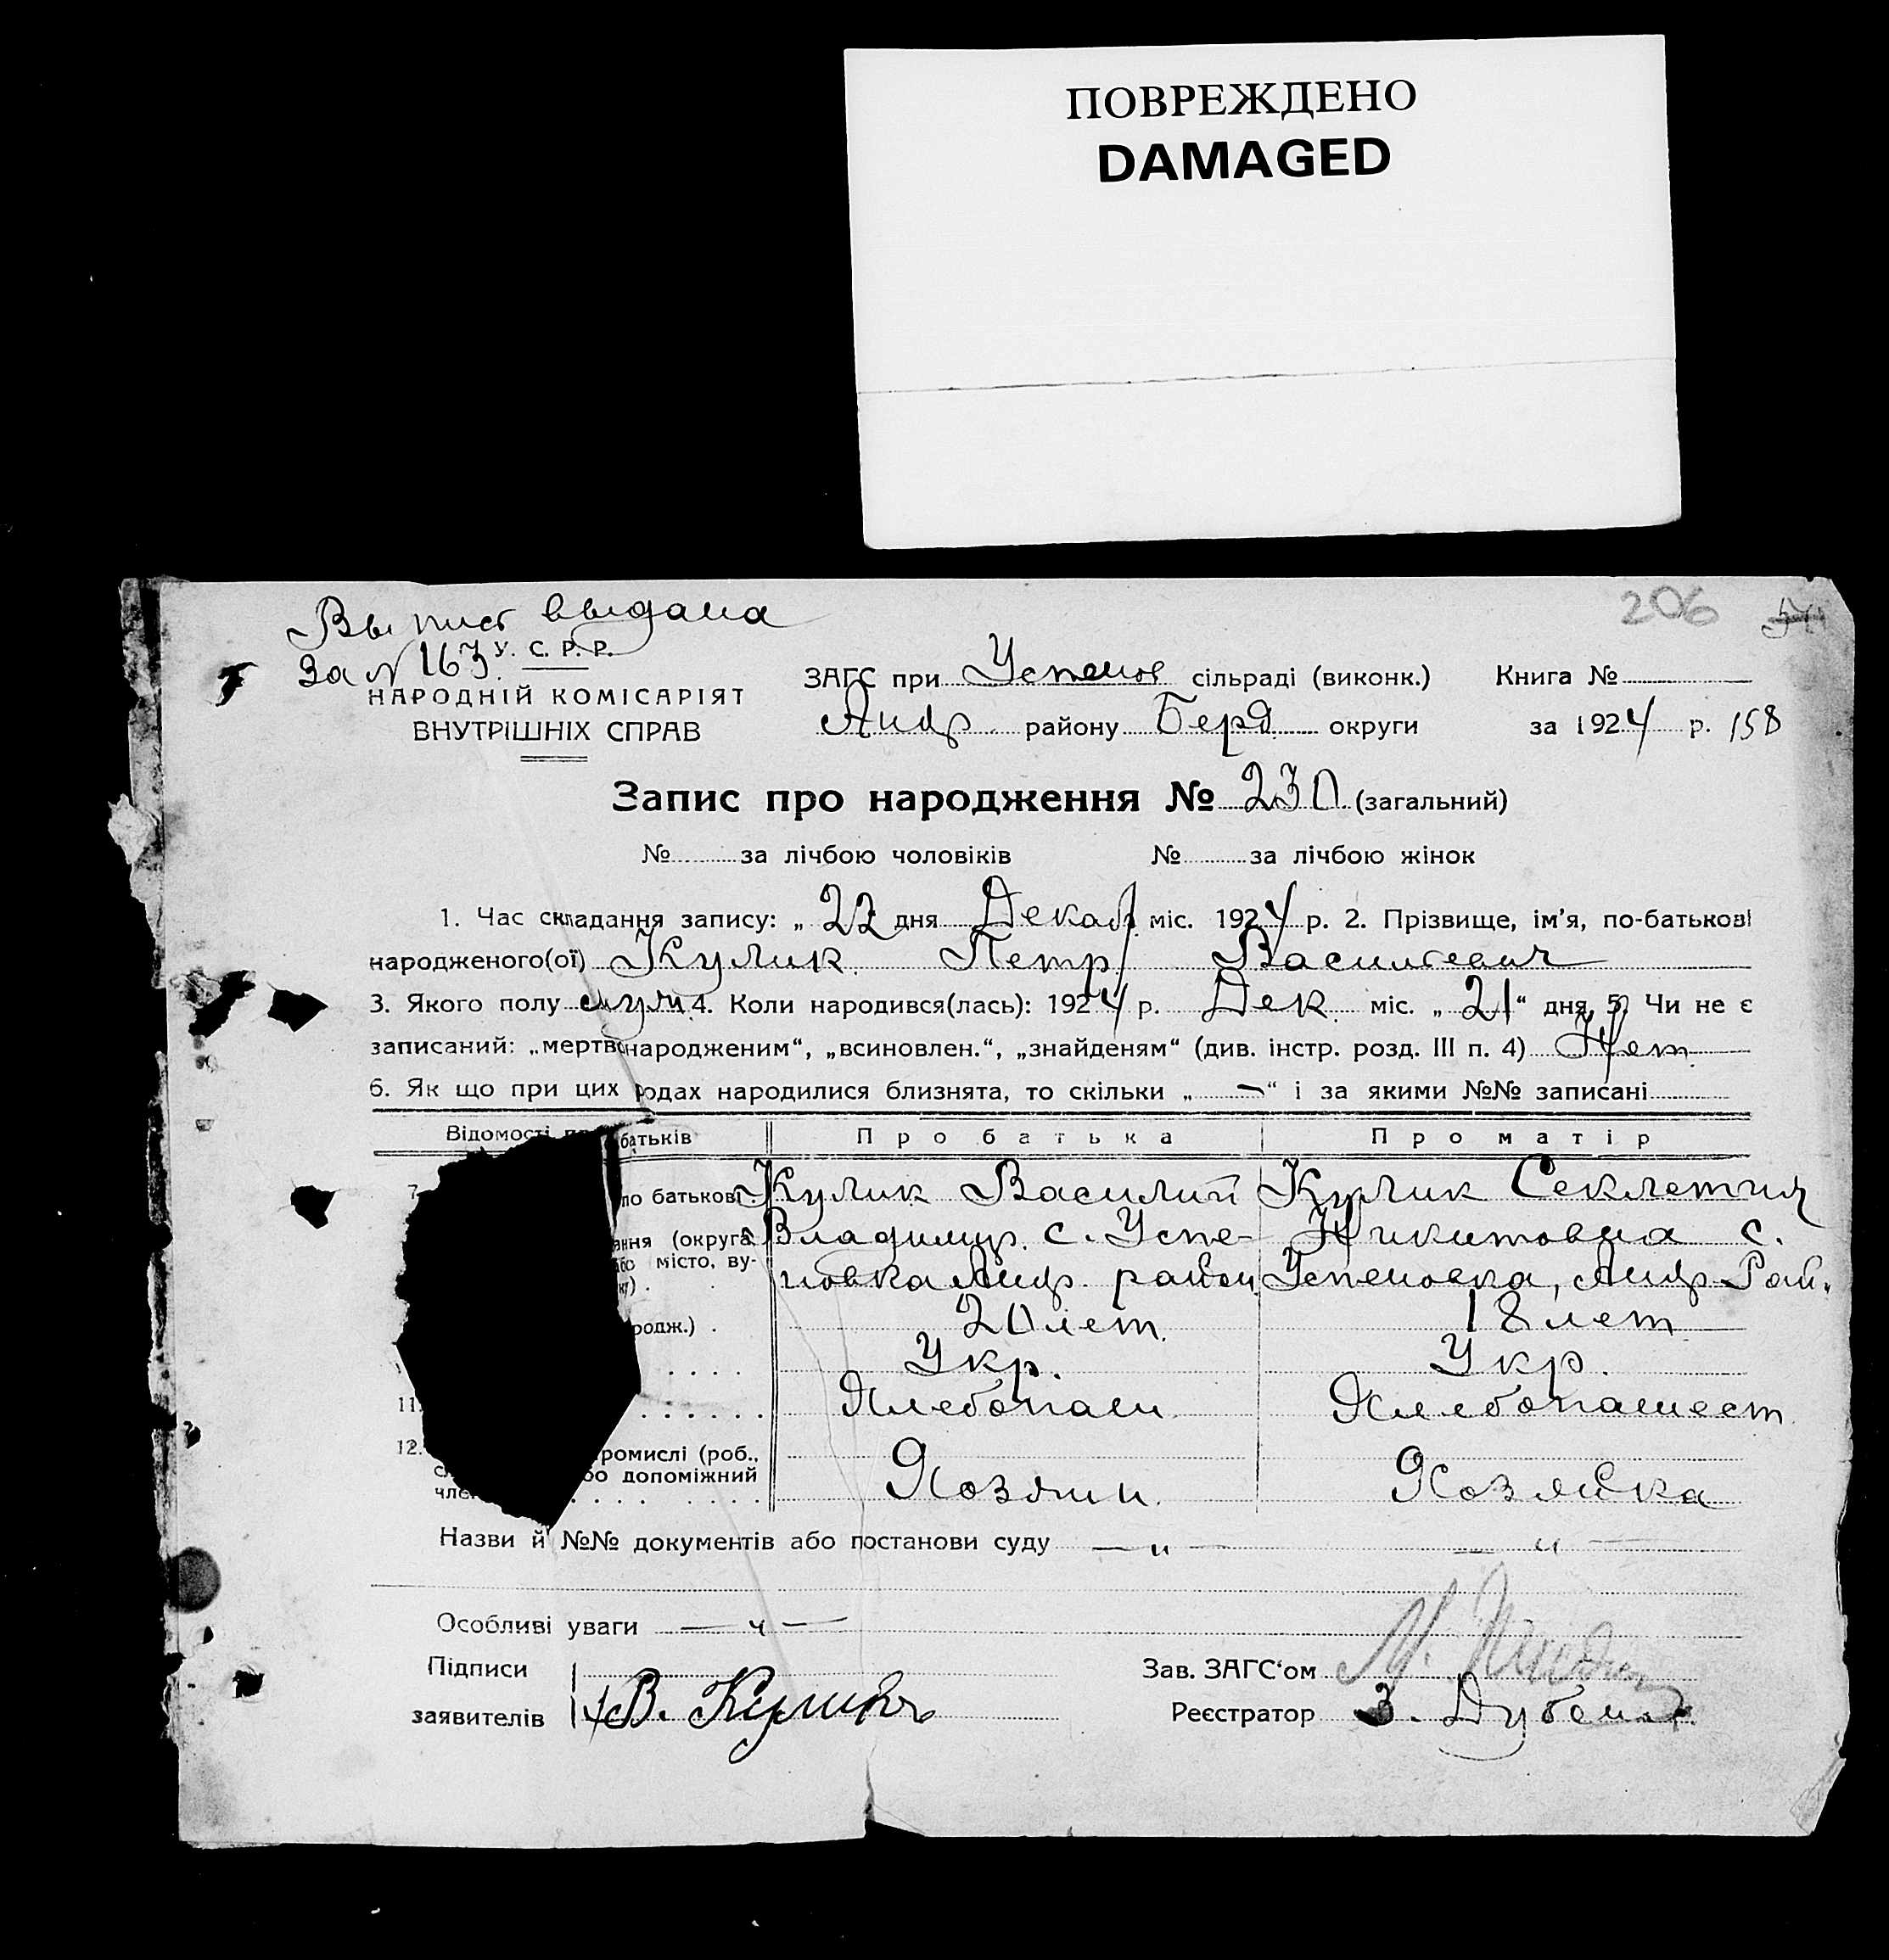 ПОВРЕЖДЕНО
DAMAGED
206
Выпись выдана
За № 163
У. С. Р. Р.
НАРОДНІЙ КОМІСАРІЯТ
ВНУТРІШНІХ СПРАВ
ЗАГС при Успенов сільраді (виконк.) Книга №
Андр району Берд округи за 1924 р. 158
Запис про народження № 230 (загальний)
№ за лічбою чоловіків № за лічбою жінок
1. Час складання запису: „ 22 дня Декаб міс. 1924 р. 2. Прізвище, ім'я, по-батькові
народженого(ої) Кулик Петр Васильевич
3. Якого полу муж 4. Коли народився(лась): 1924 р. Дек. міс. „ 21 “ дня, 5. Чи не є
записаний: „мертвонародженим“, „всиновлен.“, „знайденям“ (див. інстр. розд. III п. 4) Нет
6. Як що при цих родах народилися близнята, то скільки „ — “ і за якими №№ записані
Відомості батьків Про батька Про матір
7 по батькові Кулик Василий Кулик Секлетия
ання (округа Владимир. с. Успе- Никитовна с.
або місто, ву- новка Андр. район Успеновка, Андр Рай.
родж.) . 20 лет. 18 лет
Укр. Укр.
11. Хлебопаш. Хлебопашест
12. ромислі (роб.,
бо допоміжний Хозяин. Хозяйка
член
Назви й №№ документів або постанови суду — „ — — „ —
Особливі уваги — „ —
Підписи Зав. ЗАГС'ом
заявителів В. Кулик Реєстратор З. Дубен